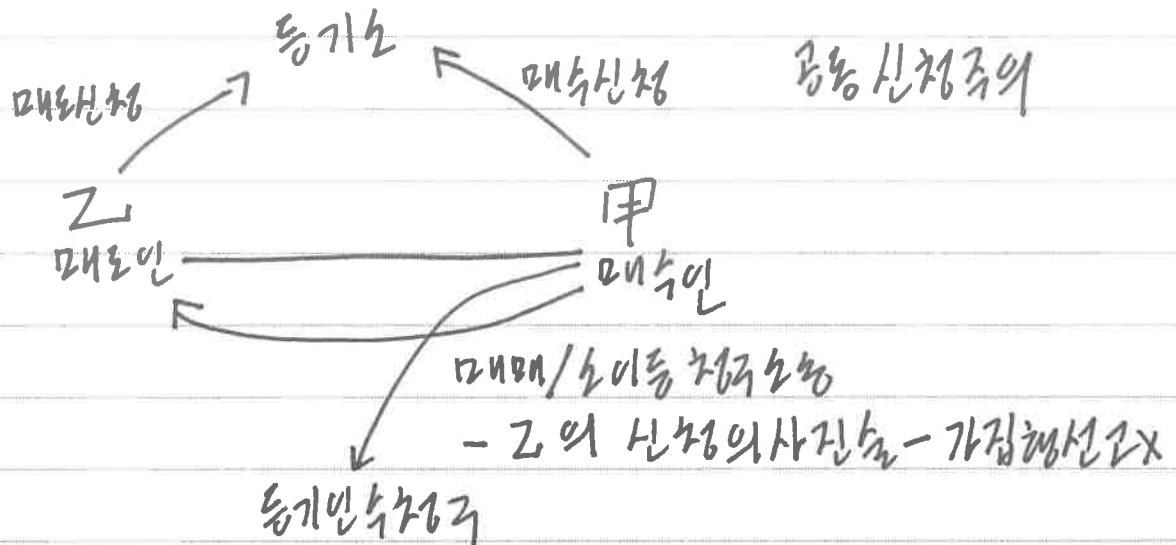 등기소
매도신청
매수신청
공동신청주의
乙
甲
매도인
매수인
매매/소이등 청구소송
- 乙의 신청의사진술 - 가집행선고x
등기인수청구